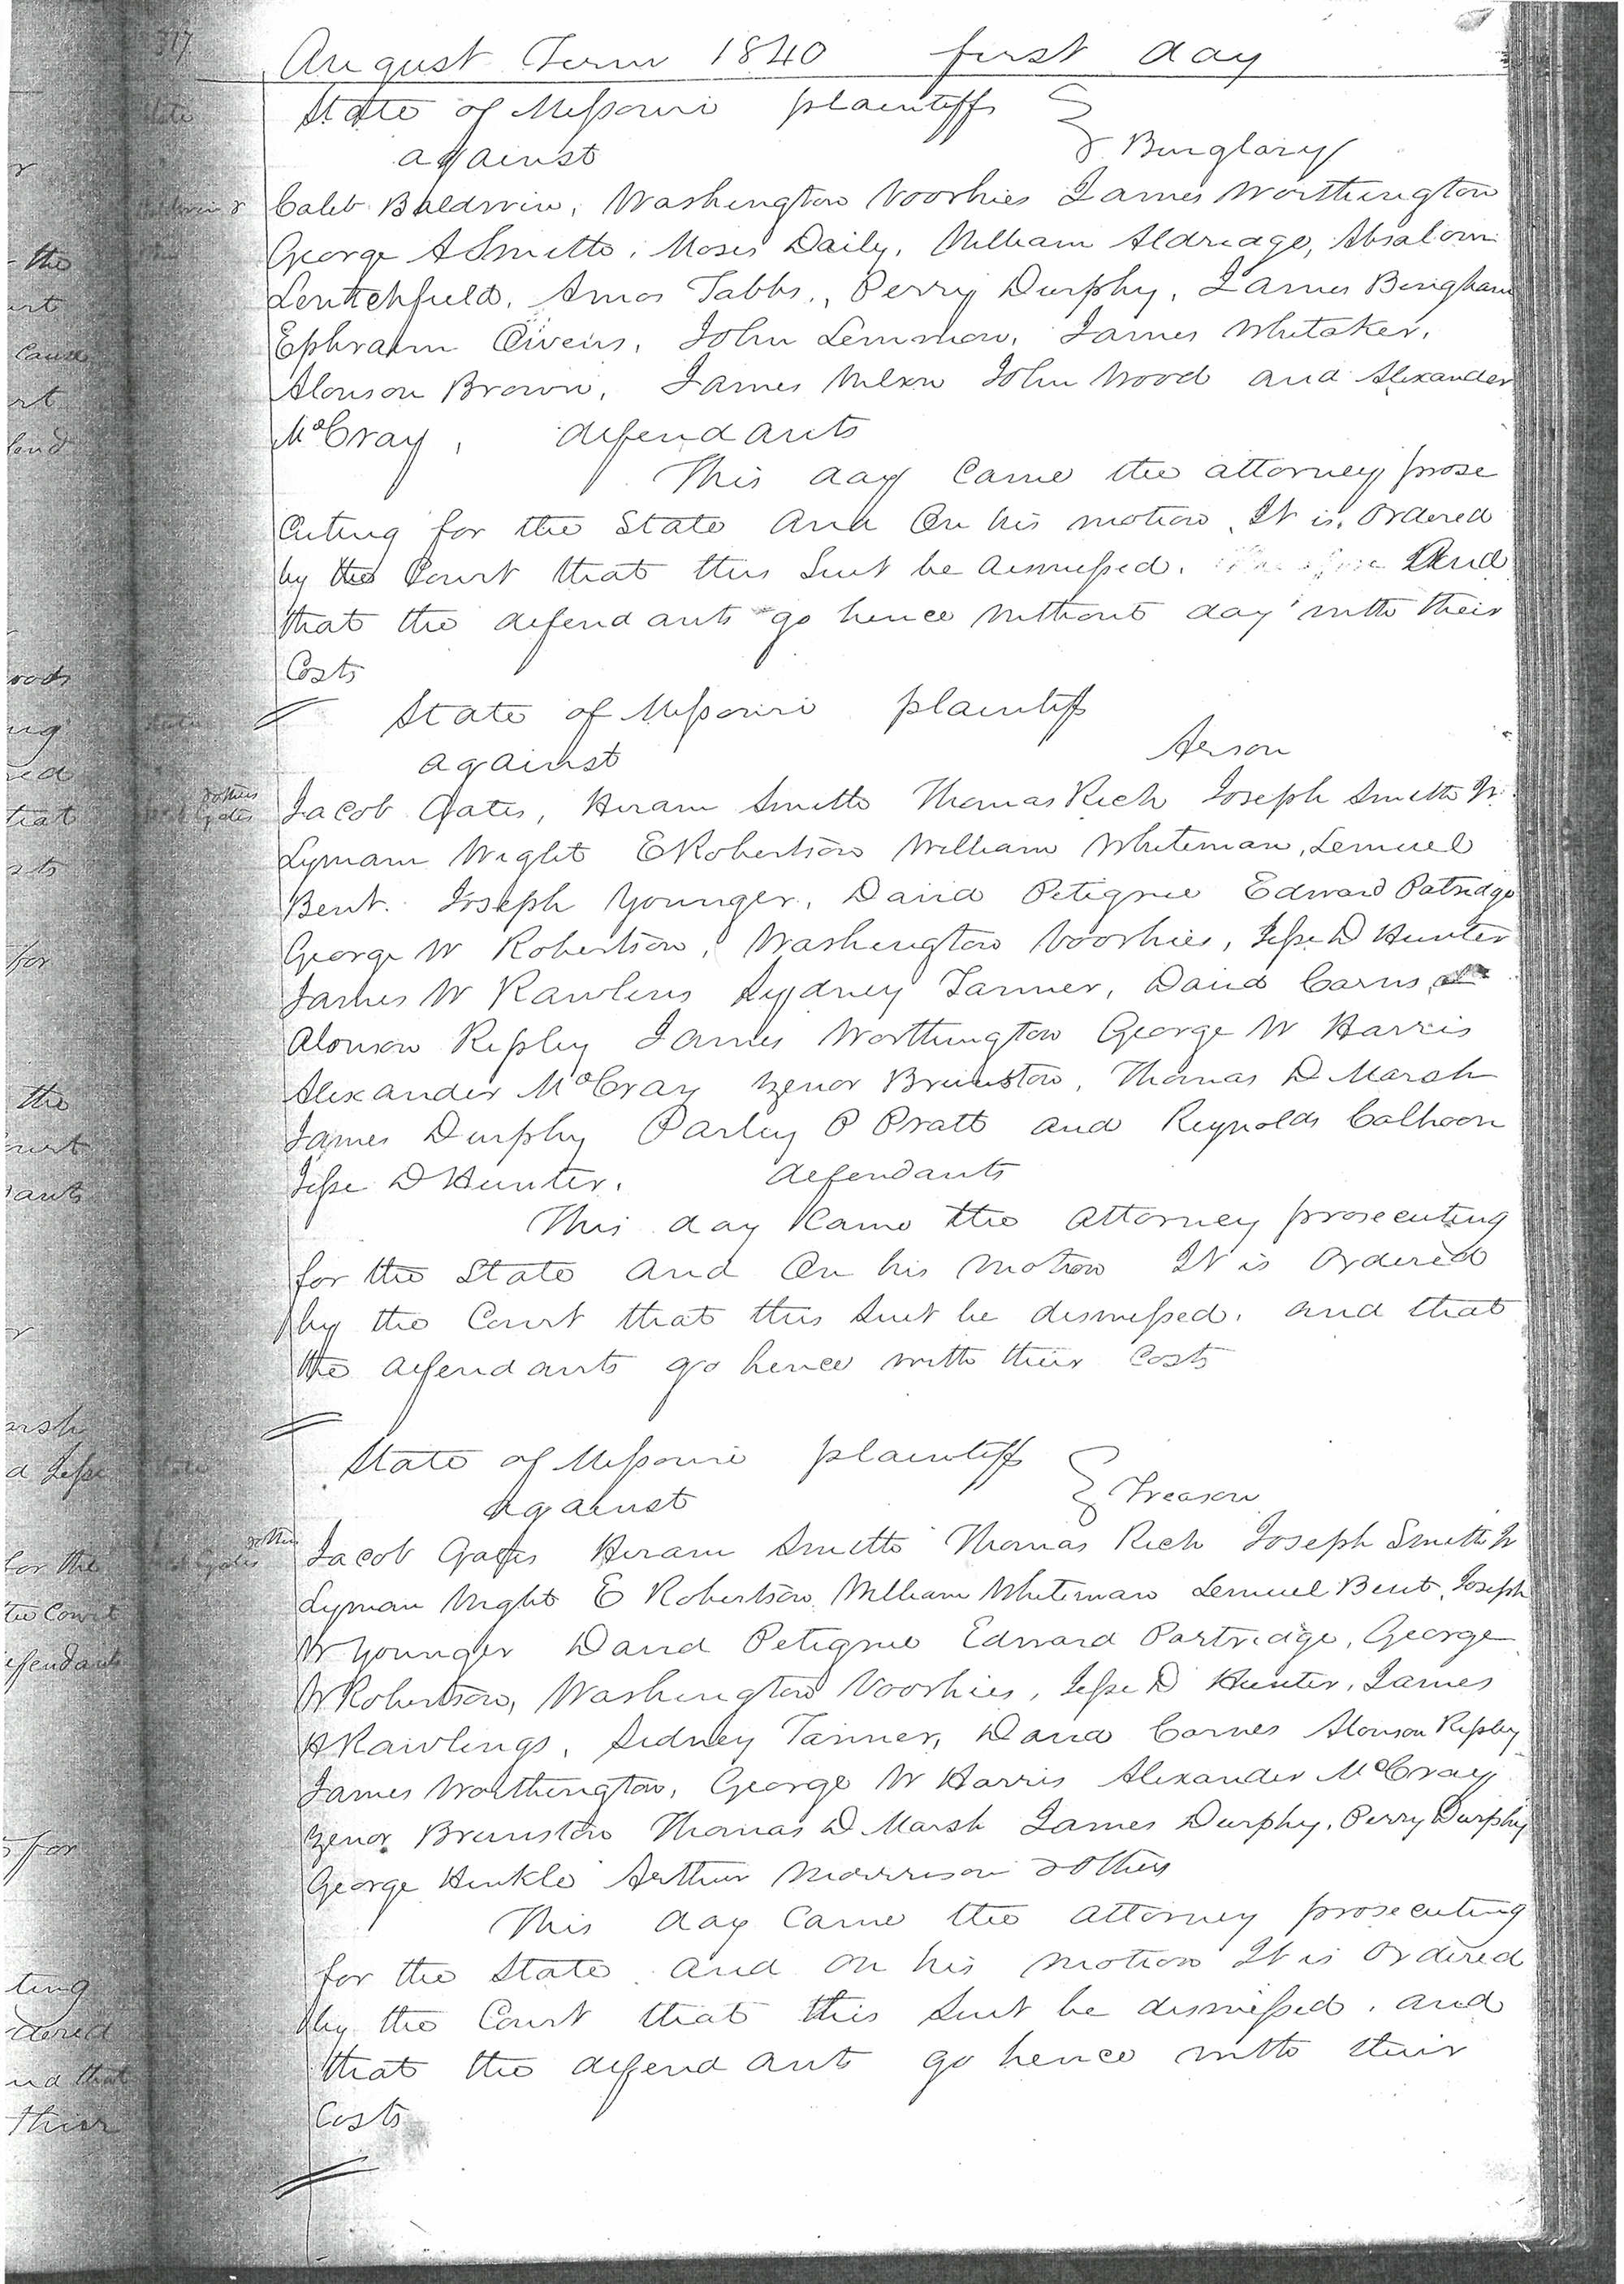 317
August Term 1840 first day
State of Missouri plaintiffs
against } Burglary
Caleb Baldwin, Washington Voorhies James Worthington
George A Smith, Moses Daily, William Aldridge, Absalom
Lentchfield, Amos Tabbs, Perry Durphy, James Bingham
Ephraim Owens, John Lemmon, James Whitaker,
Alonson Brown, James Nelson John Wood and Alexander
McCray, defendants
This day came the attorney prose
cuting for the State and On his motion It is Ordered
by the Court that this Suit be dismissed. And
that the defendants go hence without day with their
Costs
State of Missouri plaintiff
against Arson
Jacob Gates, Hiram Smith Thomas Rich Joseph Smith Jr
Lyman Wight E Robertson William Whiteman, Lemuel
Bent. Joseph Younger, David Petigrue Edward Patridge
George W Robertson, Washington Voorhies, Jesse D Hunter
James W Rawlins Sydney Tanner, David Carns
Alonson Ripley James Worthington George W Harris
Alexander McCray Zenor Brunston, Thomas D Marsh
James Durphy Parley P Pratt and Reynolds Calhoon
Jesse D Hunter. defendants
This day Came the attorney prosecuting
for the State and On his motion It is Ordered
by the Court that this Suit be dismissed. and that
the defendants go hence with their Costs
State of Missouri plaintiff
against } Treason
Jacob Gates Hiram Smith Thomas Rich Joseph Smith Jr
Lyman Wight E Robertson William Whiteman Lemuel Bent, Joseph
W Younger David Petigrue Edward Partridge, George
W Robertson, Washington Voorhies, Jesse D Hunter, James
H Rawlings, Sidney Tanner, David Carnes Alonson Ripley
James Worthington, George W Harris Alexander McCray
Zenor Brunston Thomas D Marsh James Durphy, Perry Durphy
George Hinkle Arthur Morrison & others
This day Came the attorney prosecuting
for the State and on his motion It is Ordered
by the Court that this Suit be dismissed. and
that the defendants go hence with their
Costs